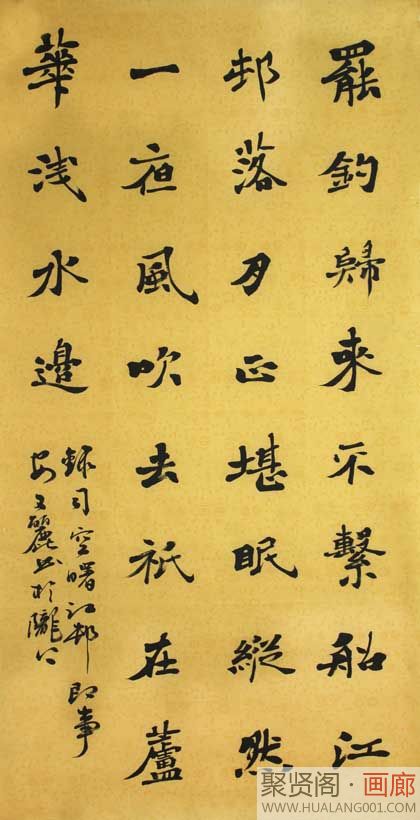 罷釣歸來不繫船江
邨落月正堪眠縱然
一夜風吹去祇在蘆
華浅水邊
録司空曙江邨即事
文麗书於隴上
聚贤阁·画廊
WWW.HUALANG001.COM